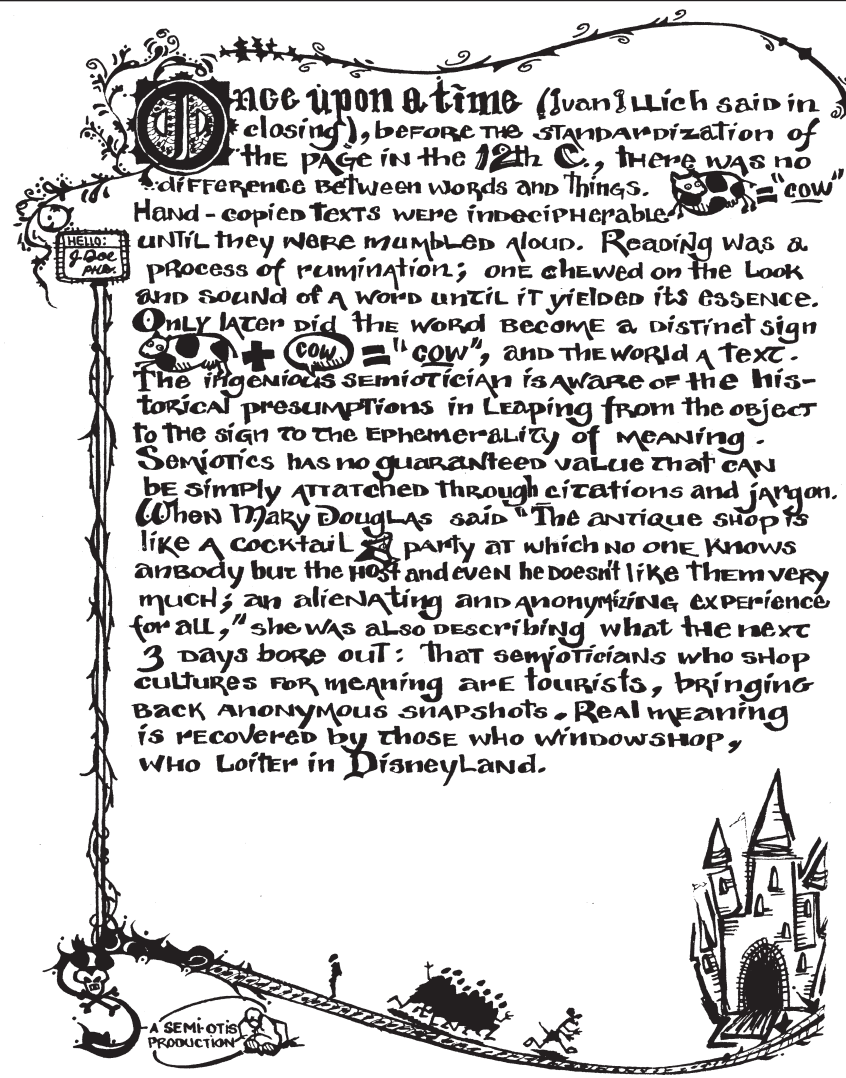 Once upon a time (Ivan Illich said in
closing), before the standardization of
the page in the 12th C., there was no
difference between words and things. = "cow"
Hand-copied texts were indecipherable
until they were mumbled aloud. Reading was a
process of rumination; one chewed on the look
and sound of a word until it yielded its essence.
Only later did the word become a distinct sign
+ cow = "cow", and the world a text.
The ingenious semiotician is aware of the his-
torical presumptions in leaping from the object
to the sign to the ephemerality of meaning.
Semiotics has no guaranteed value that can
be simply attatched through citations and jargon.
When Mary Douglas said "The antique shop is
like a cocktail party at which no one knows
anbody but the host and even he doesn't like them very
much; an alienating and anonymizing experience
for all," she was also describing what the next
3 days bore out: that semioticians who shop
cultures for meaning are tourists, bringing
back anonymous snapshots. Real meaning
is recovered by those who windowshop,
who loiter in Disneyland.
HELLO:
J. Doe
PhD.
A SEMI-OTIS
PRODUCTION